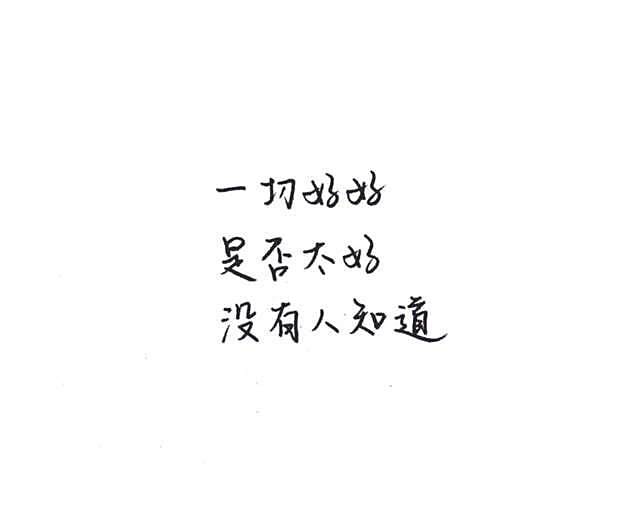 一切好好
是否太好
没有人知道